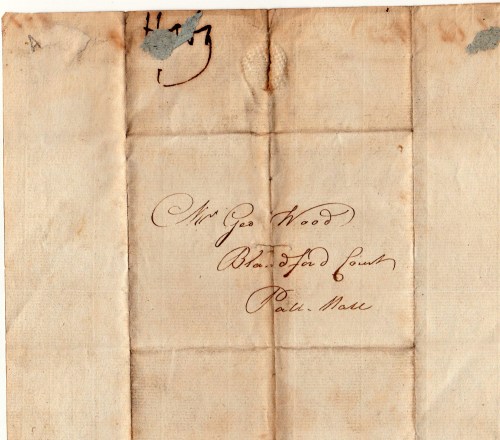 Mr Geo Wood
Blandford Court
Pall Mall